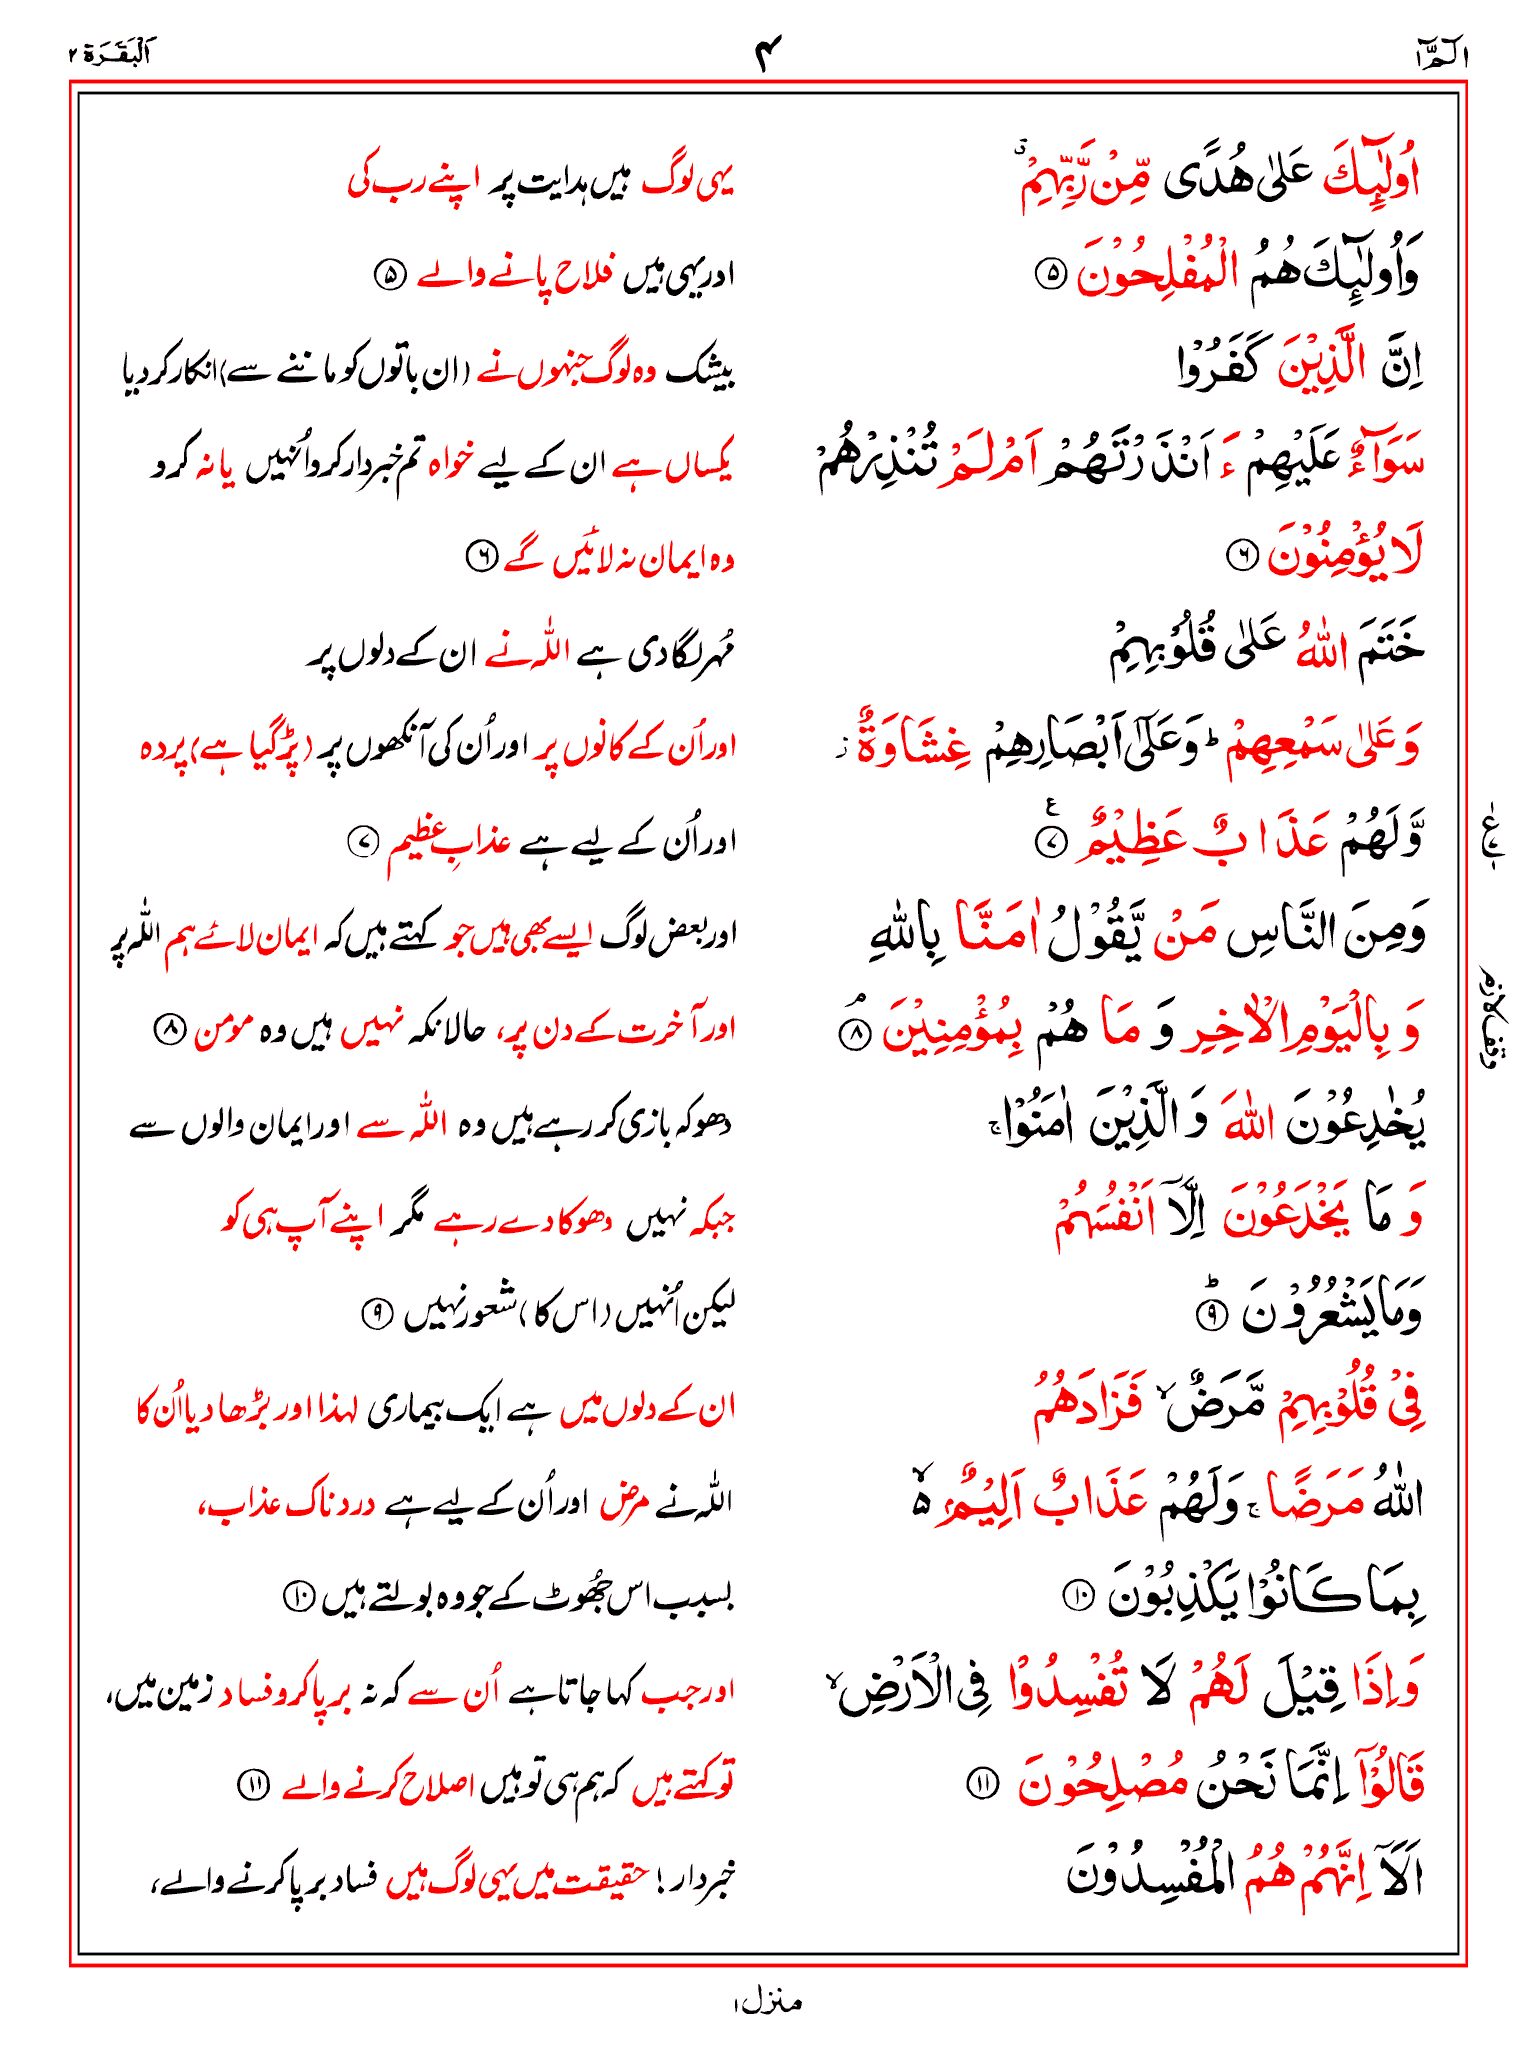 الٓمّٓ ۱
۴
اَلْبَقَرَة ۲
اُولٰٓئِكَ عَلٰى هُدًى مِّنْ رَّبِّهِمْ ۗ
یہی لوگ ہیں ہدایت پر اپنے رب کی
وَاُولٰٓئِكَ هُمُ الْمُفْلِحُوْنَ ۵
اور یہی ہیں فلاح پانے والے ۵
اِنَّ الَّذِيْنَ كَفَرُوْا
بیشک وہ لوگ جنہوں نے (ان باتوں کو ماننے سے) انکار کر دیا
سَوَآءٌ عَلَيْهِمْ ءَ اَنْذَرْتَهُمْ اَمْ لَمْ تُنْذِرْهُمْ
یکساں ہے ان کے لیے خواہ تم خبردار کرو اُنہیں یا نہ کرو
لَا يُؤْمِنُوْنَ ۶
وہ ایمان نہ لائیں گے ۶
خَتَمَ اللّٰهُ عَلٰى قُلُوْبِهِمْ
مُہر لگا دی ہے اللہ نے ان کے دلوں پر
وَعَلٰى سَمْعِهِمْ ؕ وَعَلٰٓى اَبْصَارِهِمْ غِشَاوَةٌ ز
اور اُن کے کانوں پر اور اُن کی آنکھوں پر (پڑ گیا ہے) پردہ
وَّلَهُمْ عَذَابٌ عَظِيْمٌ ۷ ع
اور اُن کے لیے ہے عذابِ عظیم ۷
وَمِنَ النَّاسِ مَنْ يَّقُوْلُ اٰمَنَّا بِاللّٰهِ
اور بعض لوگ ایسے بھی ہیں جو کہتے ہیں کہ ایمان لائے ہم اللہ پر
وَ بِالْيَوْمِ الْاٰخِرِ وَ مَا هُمْ بِمُؤْمِنِيْنَ ۸ ۘ
اور آخرت کے دن پر، حالانکہ نہیں ہیں وہ مومن ۸
وقف لازم
يُخٰدِعُوْنَ اللّٰهَ وَ الَّذِيْنَ اٰمَنُوْا ۚ
دھوکہ بازی کر رہے ہیں وہ اللہ سے اور ایمان والوں سے
وَ مَا يَخْدَعُوْنَ اِلَّآ اَنْفُسَهُمْ
جبکہ نہیں دھوکا دے رہے مگر اپنے آپ ہی کو
وَمَا يَشْعُرُوْنَ ۹ ؕ
لیکن اُنہیں (اس کا) شعور نہیں ۹
فِىْ قُلُوْبِهِمْ مَّرَضٌ ۙ فَزَادَهُمُ
ان کے دلوں میں ہے ایک بیماری لہذا اور بڑھا دیا اُن کا
اللّٰهُ مَرَضًا ۚ وَلَهُمْ عَذَابٌ اَلِيْمٌۢ ۵ ۙ
اللہ نے مرض اور اُن کے لیے ہے دردناک عذاب،
بِمَا كَانُوْا يَكْذِبُوْنَ ۱۰
بسبب اس جھُوٹ کے جو وہ بولتے ہیں ۱۰
وَاِذَا قِيْلَ لَهُمْ لَا تُفْسِدُوْا فِى الْاَرْضِ ۙ
اور جب کہا جاتا ہے اُن سے کہ نہ برپا کرو فساد زمین میں،
قَالُوْٓا اِنَّمَا نَحْنُ مُصْلِحُوْنَ ۱۱
تو کہتے ہیں کہ ہم ہی تو ہیں اصلاح کرنے والے ۱۱
اَلَآ اِنَّهُمْ هُمُ الْمُفْسِدُوْنَ
خبردار! حقیقت میں یہی لوگ ہیں فساد برپا کرنے والے،
منزل ۱